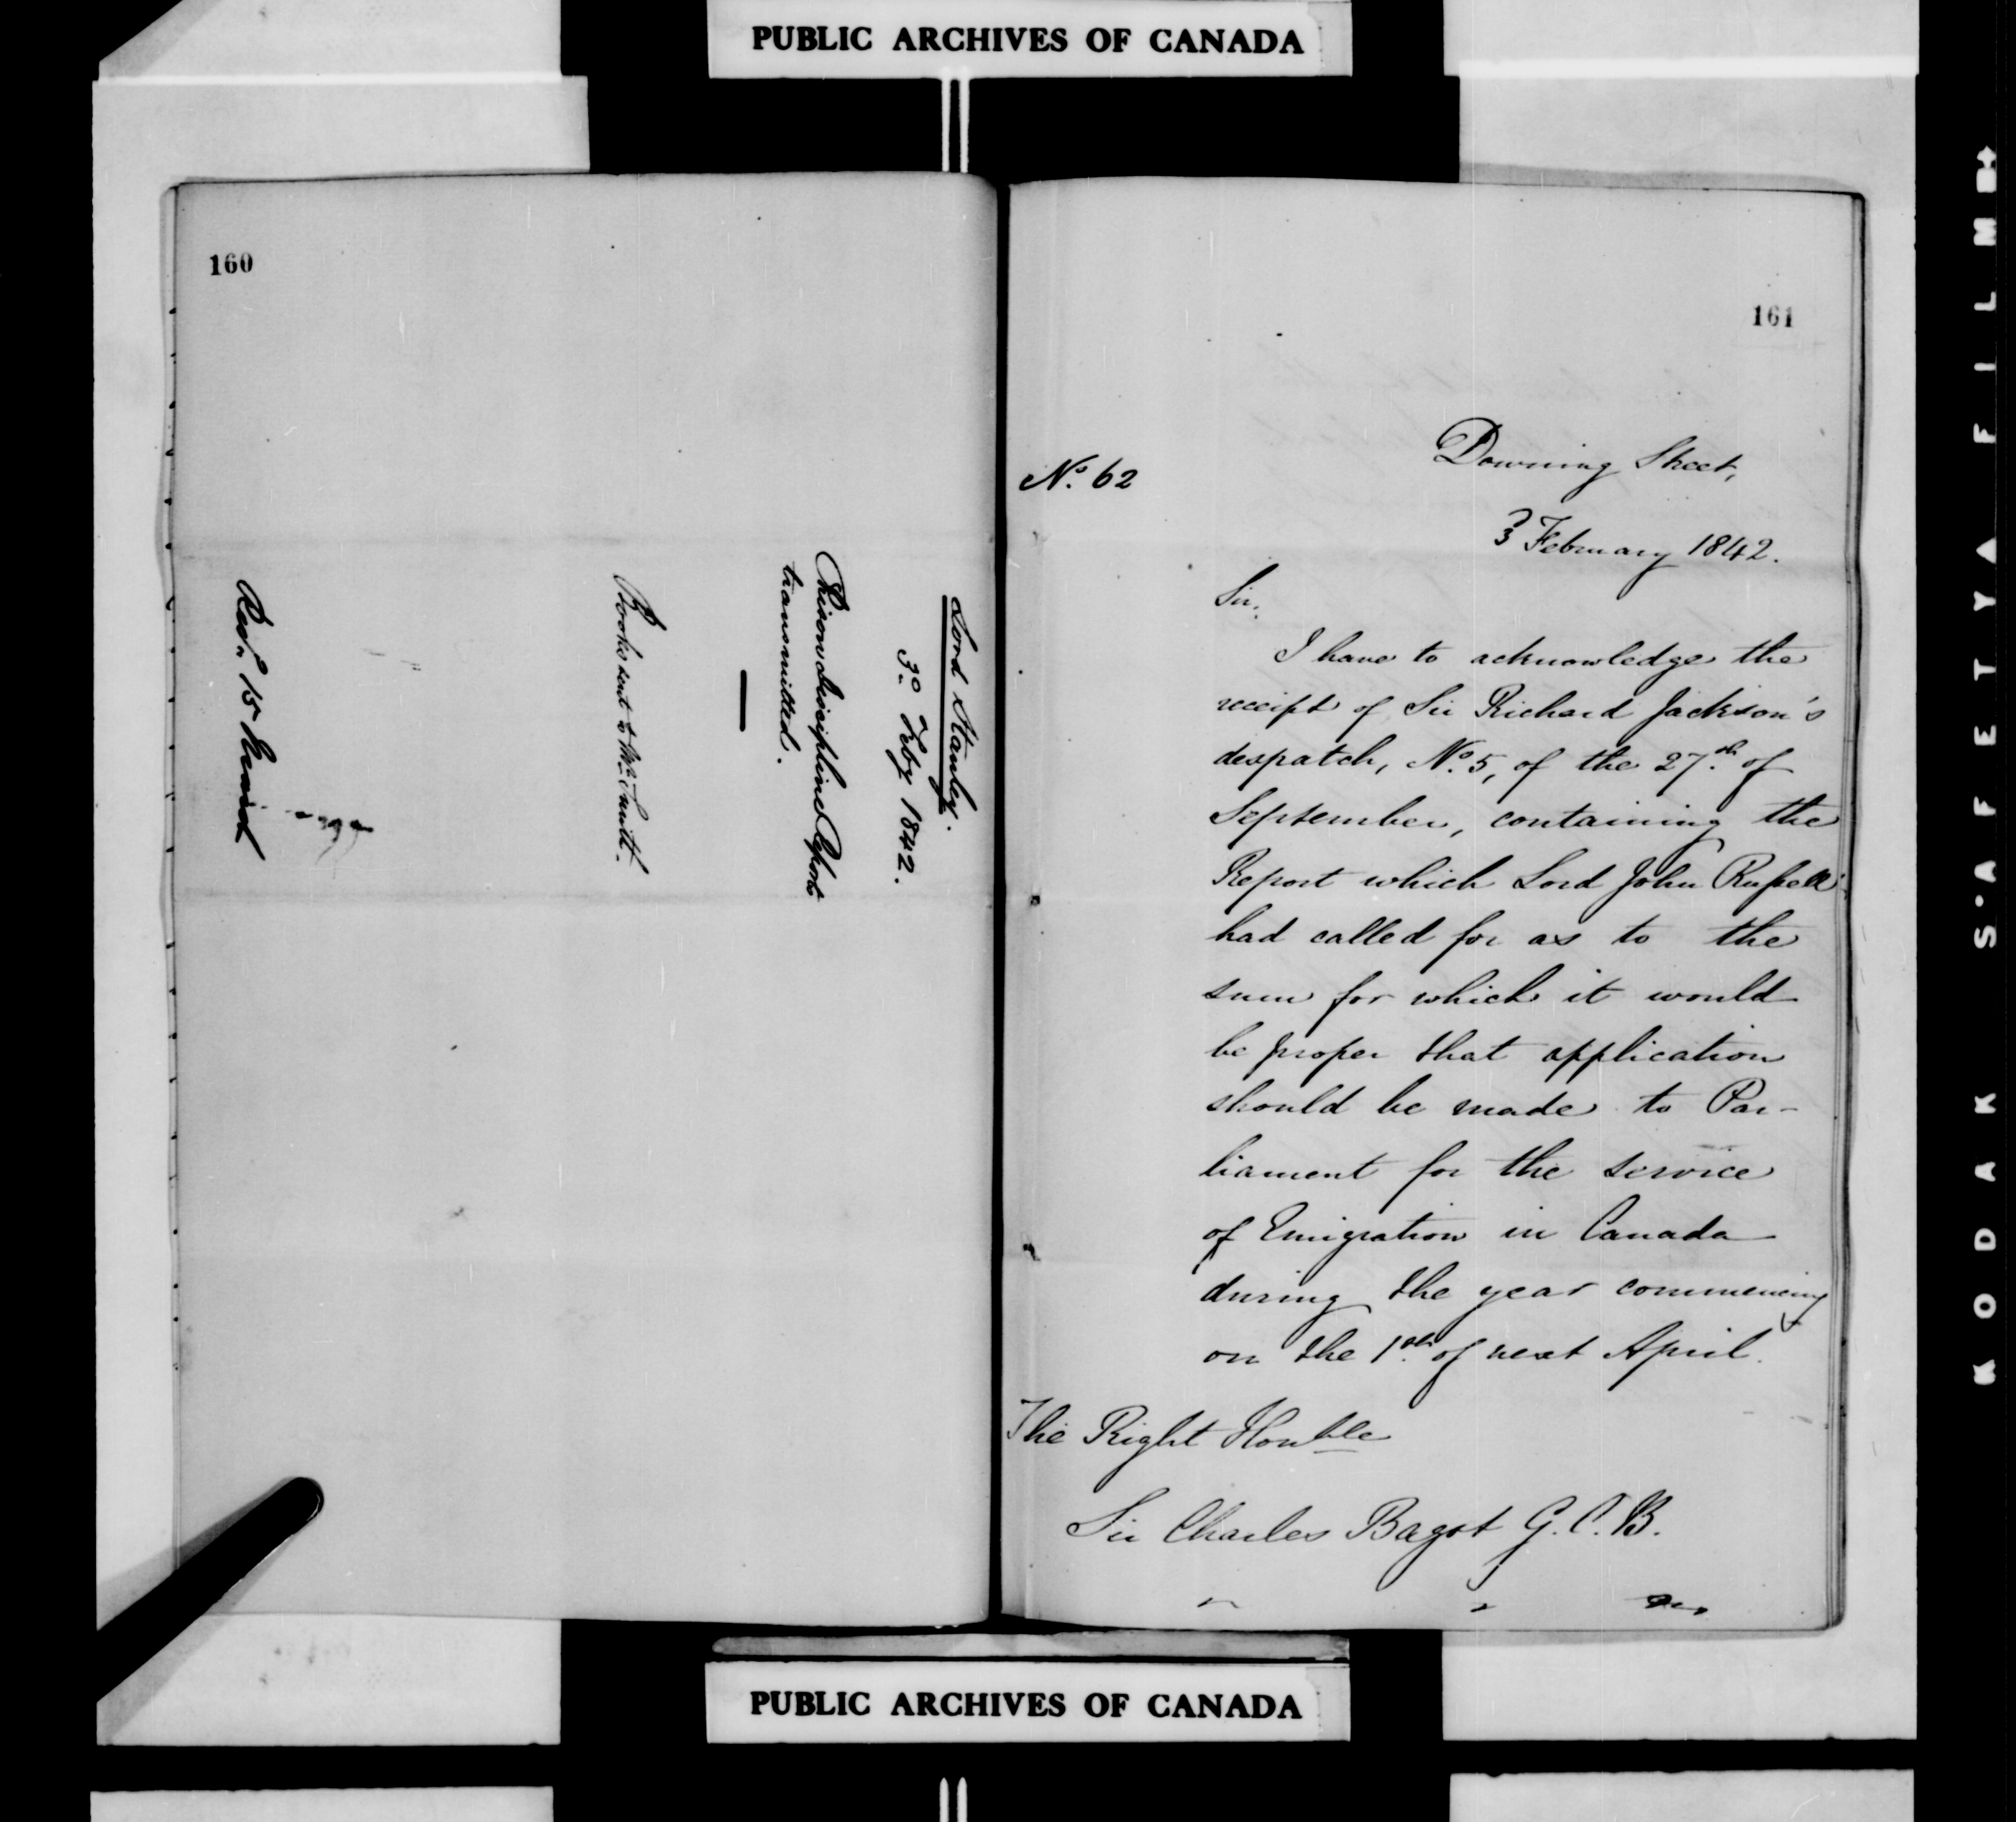 PUBLIC ARCHIVES OF CANADA
160
Lord Stanley.
3d. Feby 1842.
Prison discipline Reports
transmitted.
Books sent to Mr. Smith.
Recd. 15 March
161
No. 62
Downing Street,
3 February 1842.
Sir,
I have to acknowledge the
receipt of Sir Richard Jackson's
despatch, No. 5, of the 27th. of
September, containing the
Report which Lord John Russell
had called for as to the
sum for which it would
be proper that application
should be made to Par-
liament for the service
of Emigration in Canada
during the year commencing
on the 1st. of next April.
The Right Honble
Sir Charles Bagot G.C.B.
PUBLIC ARCHIVES OF CANADA
KODAK S'AFETY FILM